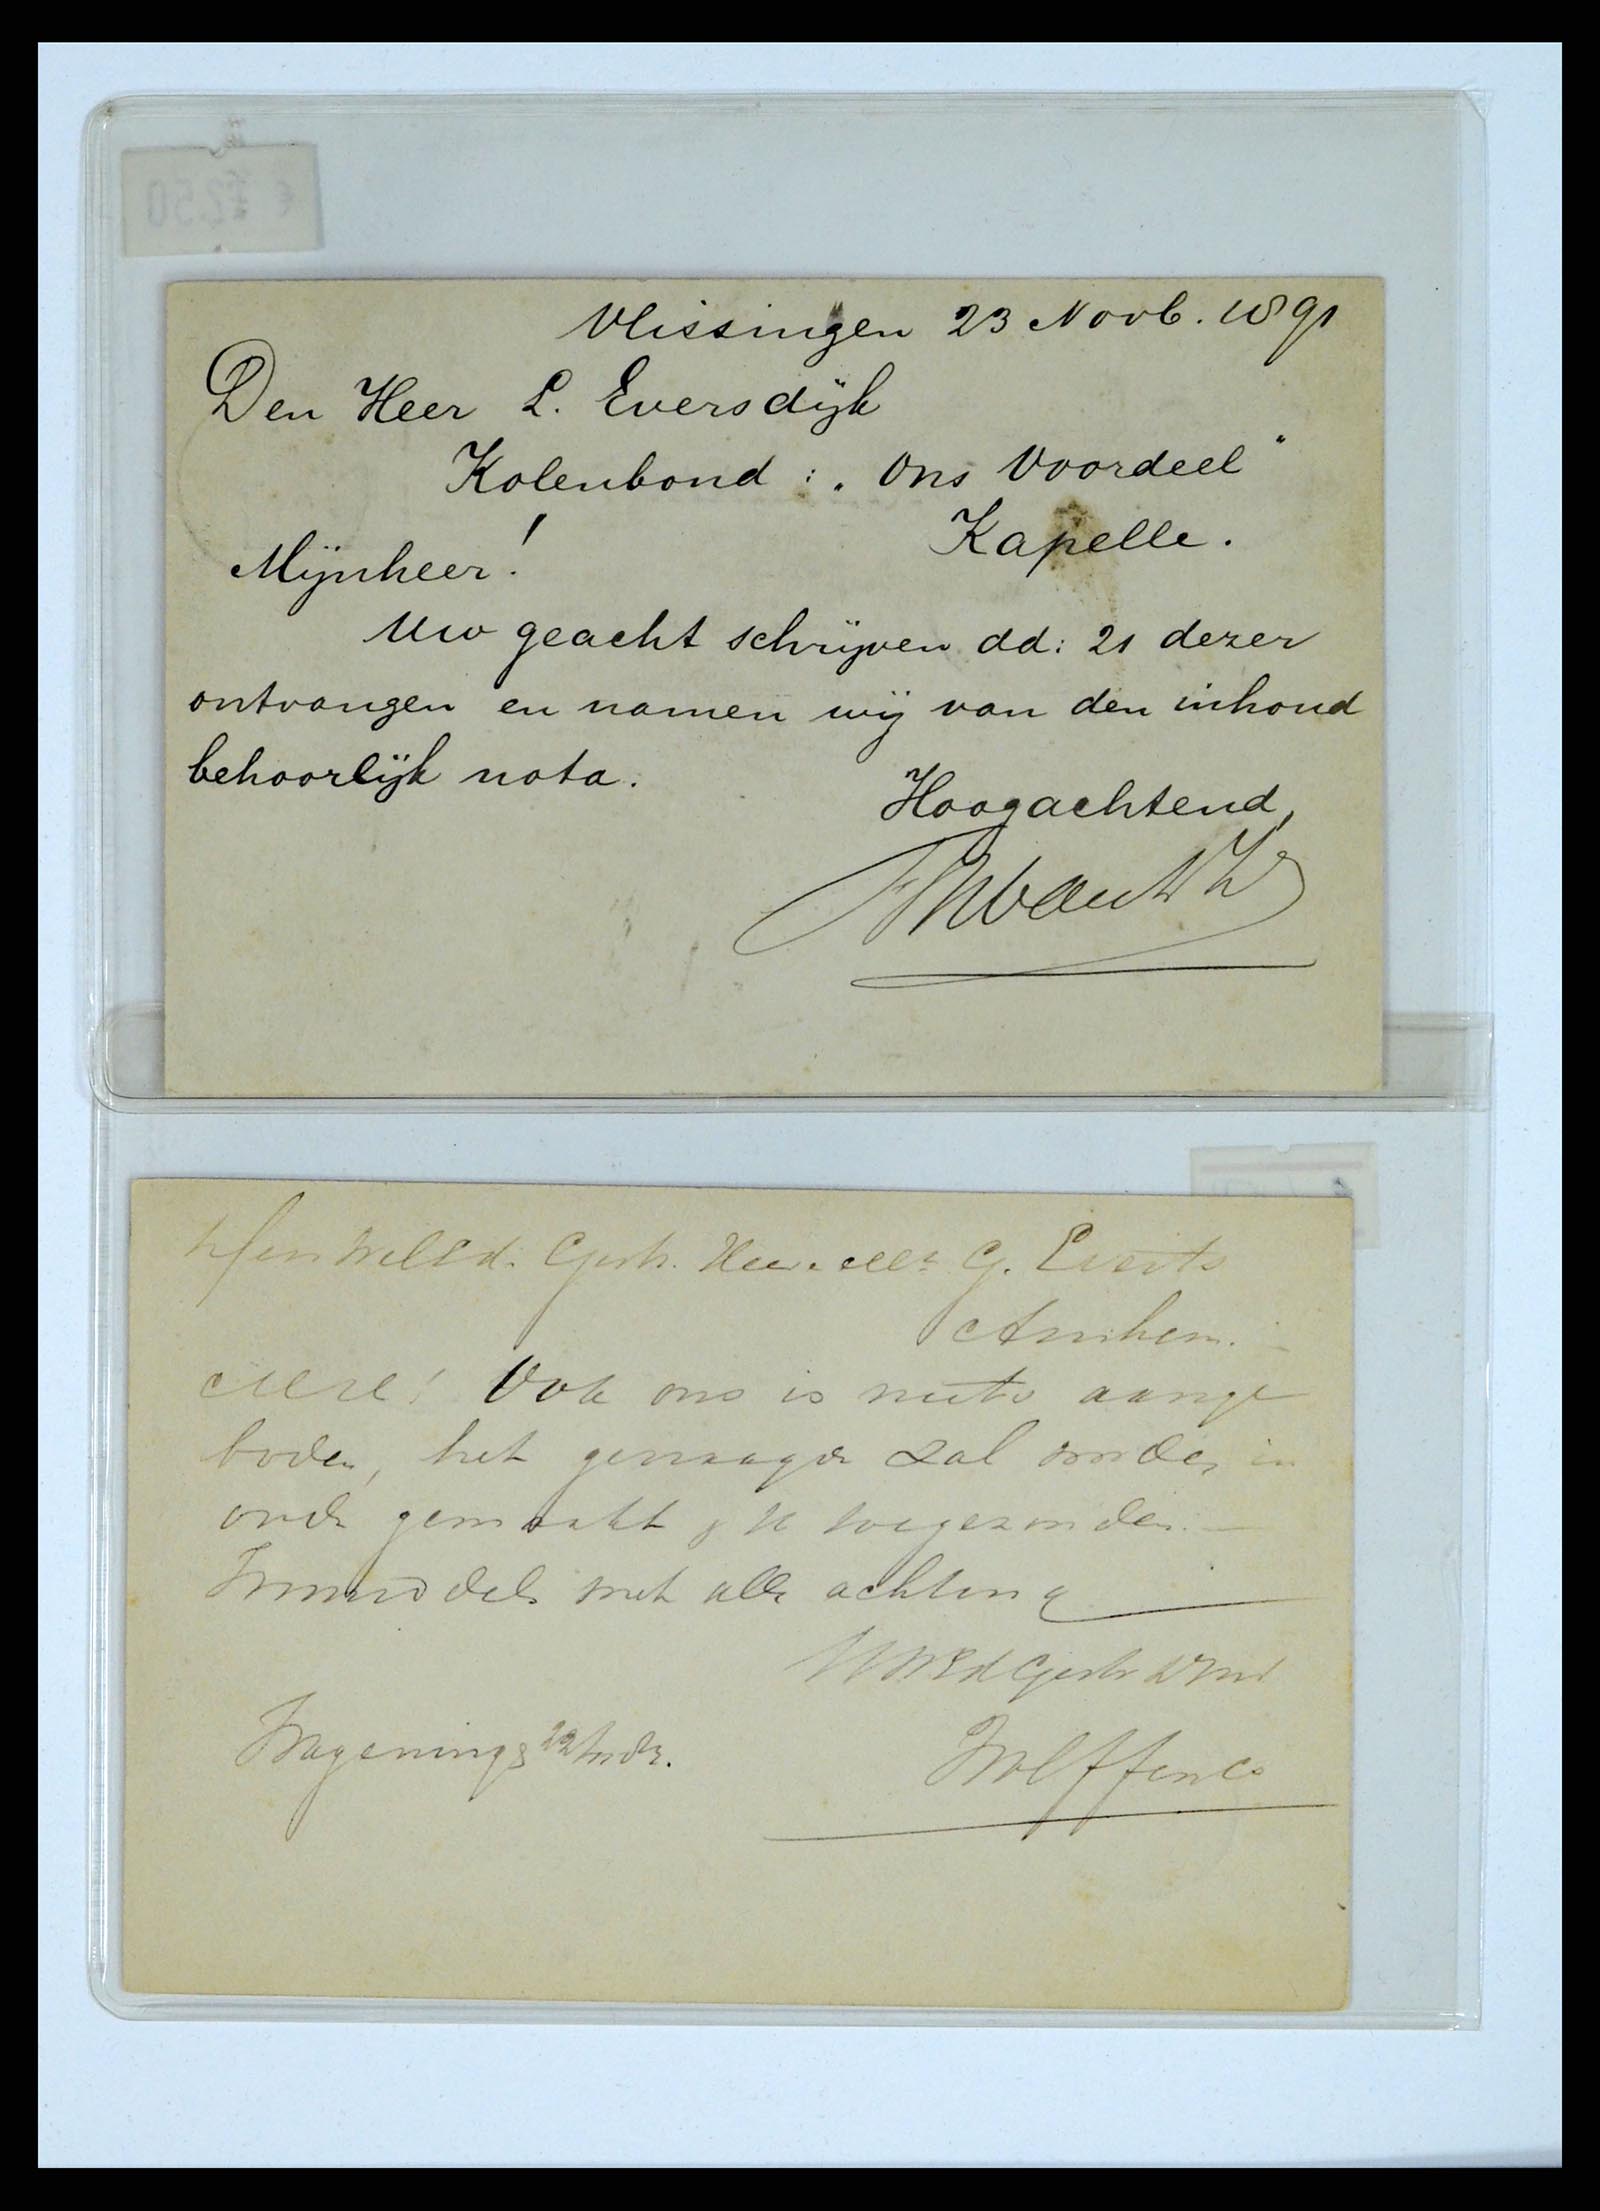 € 7250
Vlissingen 23 Novb. 1891
Den Heer L. Eversdijk
Kolenbond : „Ons Voordeel"
Kapelle.
Mijnheer!
Uw geacht schrijven dd: 21 dezer
ontvangen en namen wij van den inhoud
behoorlijk nota.
Hoogachtend,
Den WelEd. Gestr. Heer Mr G. Everts
Arnhem.
Ook ons is niets aange
boden, het gevraagde zal worden in
orde gemaakt & U toegezonden. —
Inmiddels met alle achting
UWEdGestr
Wageningen 22
Wolff en Co